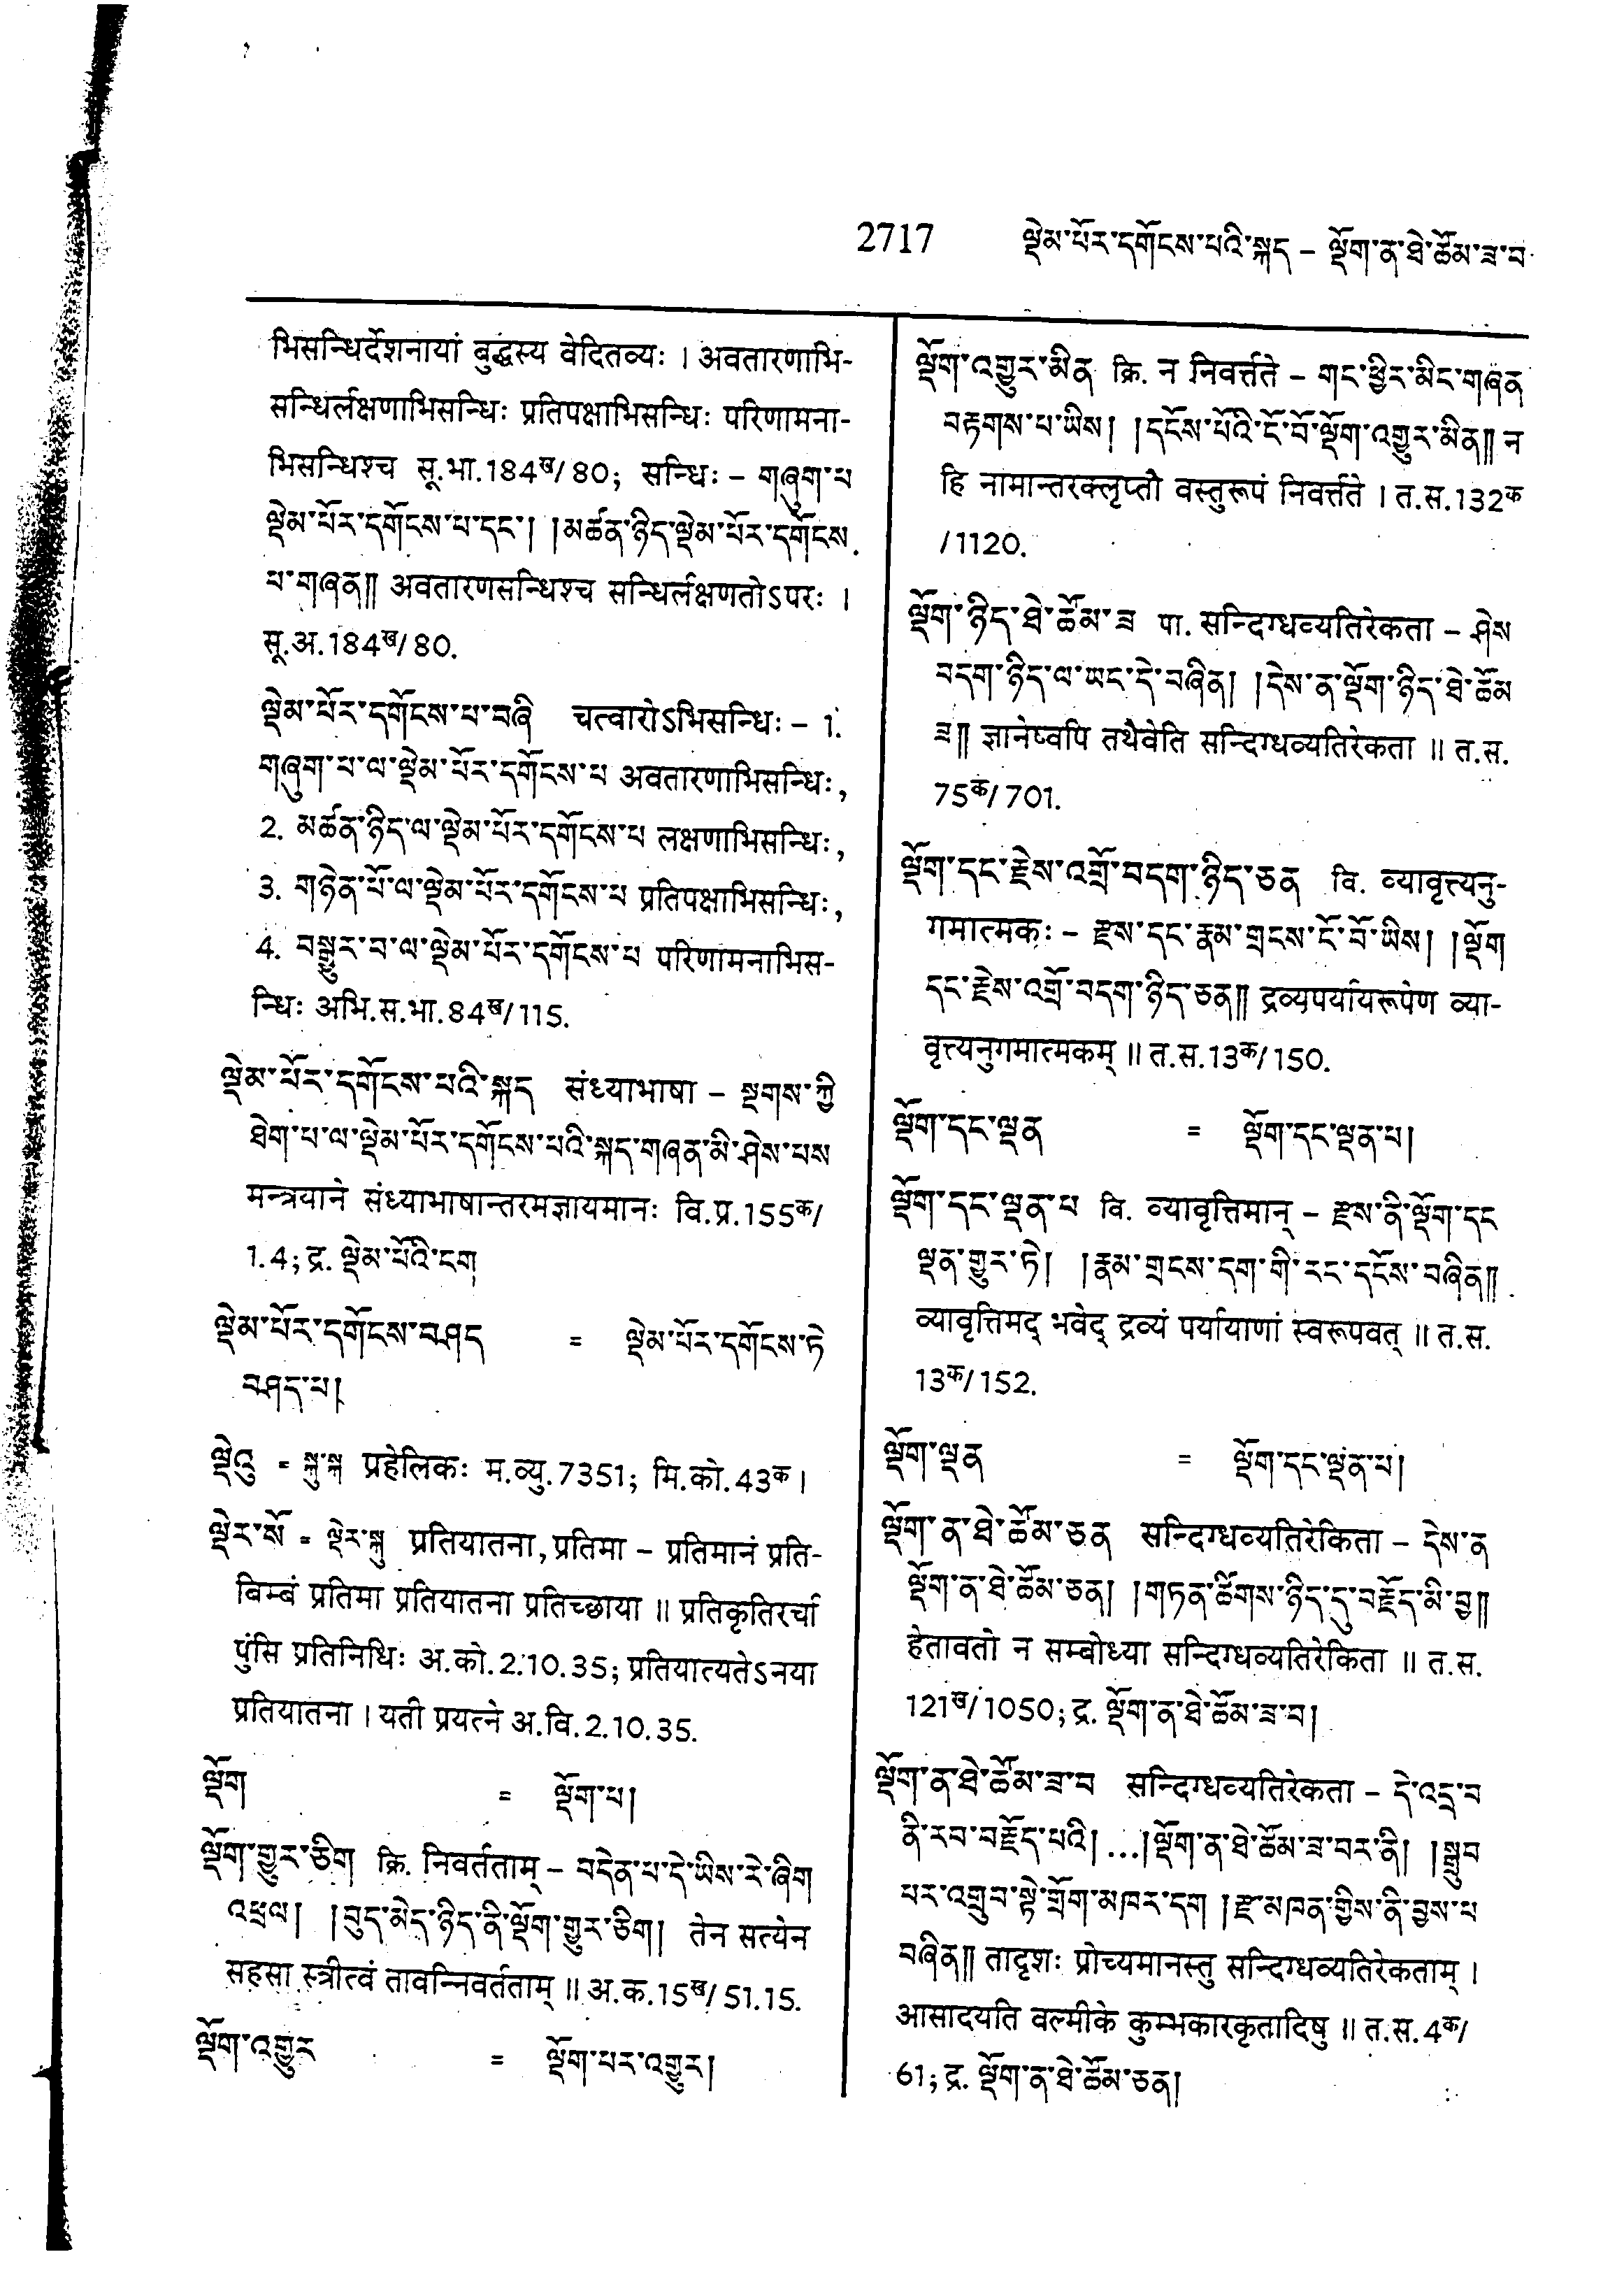 2717 ལྡེམ་པོར་དགོངས་པའི་སྐད – ལྡོག་ན་ཐེ་ཚོམ་ཟ་བ
भिसन्धिर्देशनायां बुद्धस्य वेदितव्यः । अवतारणाभि-
सन्धिर्लक्षणाभिसन्धिः प्रतिपक्षाभिसन्धिः परिणामना-
भिसन्धिश्च सू.भा.184ख/80; सन्धिः – གཞུག་པ
ལྡེམ་པོར་དགོངས་པ་དང་། །མཚན་ཉིད་ལྡེམ་པོར་དགོངས
པ་གཞན།། अवतारणसन्धिश्च सन्धिर्लक्षणतोऽपरः ।
सू.अ.184ख/80.
ལྡེམ་པོར་དགོངས་པ་བཞི चत्वारोऽभिसन्धिः – 1.
གཞུག་པ་ལ་ལྡེམ་པོར་དགོངས་པ अवतारणाभिसन्धिः,
2. མཚན་ཉིད་ལ་ལྡེམ་པོར་དགོངས་པ लक्षणाभिसन्धिः,
3. གཉེན་པོ་ལ་ལྡེམ་པོར་དགོངས་པ प्रतिपक्षाभिसन्धिः,
4. བསྒྱུར་བ་ལ་ལྡེམ་པོར་དགོངས་པ परिणामनाभिस-
न्धिः अभि.स.भा.84ख/115.
ལྡེམ་པོར་དགོངས་པའི་སྐད संध्याभाषा – སྔགས་ཀྱི
ཐེག་པ་ལ་ལྡེམ་པོར་དགོངས་པའི་སྐད་གཞན་མི་ཤེས་པས
मन्त्रयाने संध्याभाषान्तरमज्ञायमानः वि.प्र.155क/
1.4; द्र. ལྡེམ་པོའི་ངག
ལྡེམ་པོར་དགོངས་བཤད = ལྡེམ་པོར་དགོངས་ཏེ
བཤད་པ།
ལྡེའུ = སྐུ་སྐ प्रहेलिकः म.व्यु.7351; मि.को.43क ।
ལྡེར་སོ = ལྡེར་སྐུ प्रतियातना, प्रतिमा – प्रतिमानं प्रति-
बिम्बं प्रतिमा प्रतियातना प्रतिच्छाया ॥ प्रतिकृतिरर्चा
पुंसि प्रतिनिधिः अ.को.2.10.35; प्रतियात्यतेऽनया
प्रतियातना । यती प्रयत्ने अ.वि.2.10.35.
ལྡོག = ལྡོག་པ།
ལྡོག་གྱུར་ཅིག क्रि. निवर्तताम् – བདེན་པ་དེ་ཡིས་རེ་ཞིག
འཕྲལ། །བུད་མེད་ཉིད་ནི་ལྡོག་གྱུར་ཅིག། तेन सत्येन
सहसा स्त्रीत्वं तावन्निवर्तताम् ॥ अ.क.15ख/51.15.
ལྡོག་འགྱུར = ལྡོག་པར་འགྱུར།
ལྡོག་འགྱུར་མིན क्रि. न निवर्त्तते – གང་ཕྱིར་མིང་གཞན
བརྟགས་པ་ཡིས། །དངོས་པོའི་ངོ་བོ་ལྡོག་འགྱུར་མིན།། न
हि नामान्तरक्लृप्तौ वस्तुरूपं निवर्त्तते । त.स.132क
/1120.
ལྡོག་ཉིད་ཐེ་ཚོམ་ཟ पा. सन्दिग्धव्यतिरेकता – ཤེས
བདག་ཉིད་ལ་ཡང་དེ་བཞིན། །དེས་ན་ལྡོག་ཉིད་ཐེ་ཚོམ
ཟ།། ज्ञानेष्वपि तथैवेति सन्दिग्धव्यतिरेकता ॥ त.स.
75क/701.
ལྡོག་དང་རྗེས་འགྲོ་བདག་ཉིད་ཅན वि. व्यावृत्त्यनु-
गमात्मकः – རྫས་དང་རྣམ་གྲངས་ངོ་བོ་ཡིས། །ལྡོག
དང་རྗེས་འགྲོ་བདག་ཉིད་ཅན།། द्रव्यपर्यायरूपेण व्या-
वृत्त्यनुगमात्मकम् ॥ त.स.13क/150.
ལྡོག་དང་ལྡན = ལྡོག་དང་ལྡན་པ།
ལྡོག་དང་ལྡན་པ वि. व्यावृत्तिमान् – རྫས་ནི་ལྡོག་དང
ལྡན་གྱུར་ཏེ། །རྣམ་གྲངས་དག་གི་རང་དངོས་བཞིན།།
व्यावृत्तिमद् भवेद् द्रव्यं पर्यायाणां स्वरूपवत् ॥ त.स.
13क/152.
ལྡོག་ལྡན = ལྡོག་དང་ལྡན་པ།
ལྡོག་ན་ཐེ་ཚོམ་ཅན सन्दिग्धव्यतिरेकिता – དེས་ན
ལྡོག་ན་ཐེ་ཚོམ་ཅན། །གཏན་ཚིགས་ཉིད་དུ་བརྗོད་མི་བྱ།།
हेतावतो न सम्बोध्या सन्दिग्धव्यतिरेकिता ॥ त.स.
121ख/1050; द्र. ལྡོག་ན་ཐེ་ཚོམ་ཟ་བ།
ལྡོག་ན་ཐེ་ཚོམ་ཟ་བ सन्दिग्धव्यतिरेकता – དེ་འདྲ་བ
ནི་རབ་བརྗོད་པའི། ...།ལྡོག་ན་ཐེ་ཚོམ་ཟ་བར་ནི། །སྒྲུབ
པར་འགྲུབ་སྟེ་གྲོག་མཁར་དག །རྫ་མཁན་གྱིས་ནི་བྱས་པ
བཞིན།། तादृशः प्रोच्यमानस्तु सन्दिग्धव्यतिरेकताम् ।
आसादयति वल्मीके कुम्भकारकृतादिषु ॥ त.स.4क/
61; द्र. ལྡོག་ན་ཐེ་ཚོམ་ཅན།